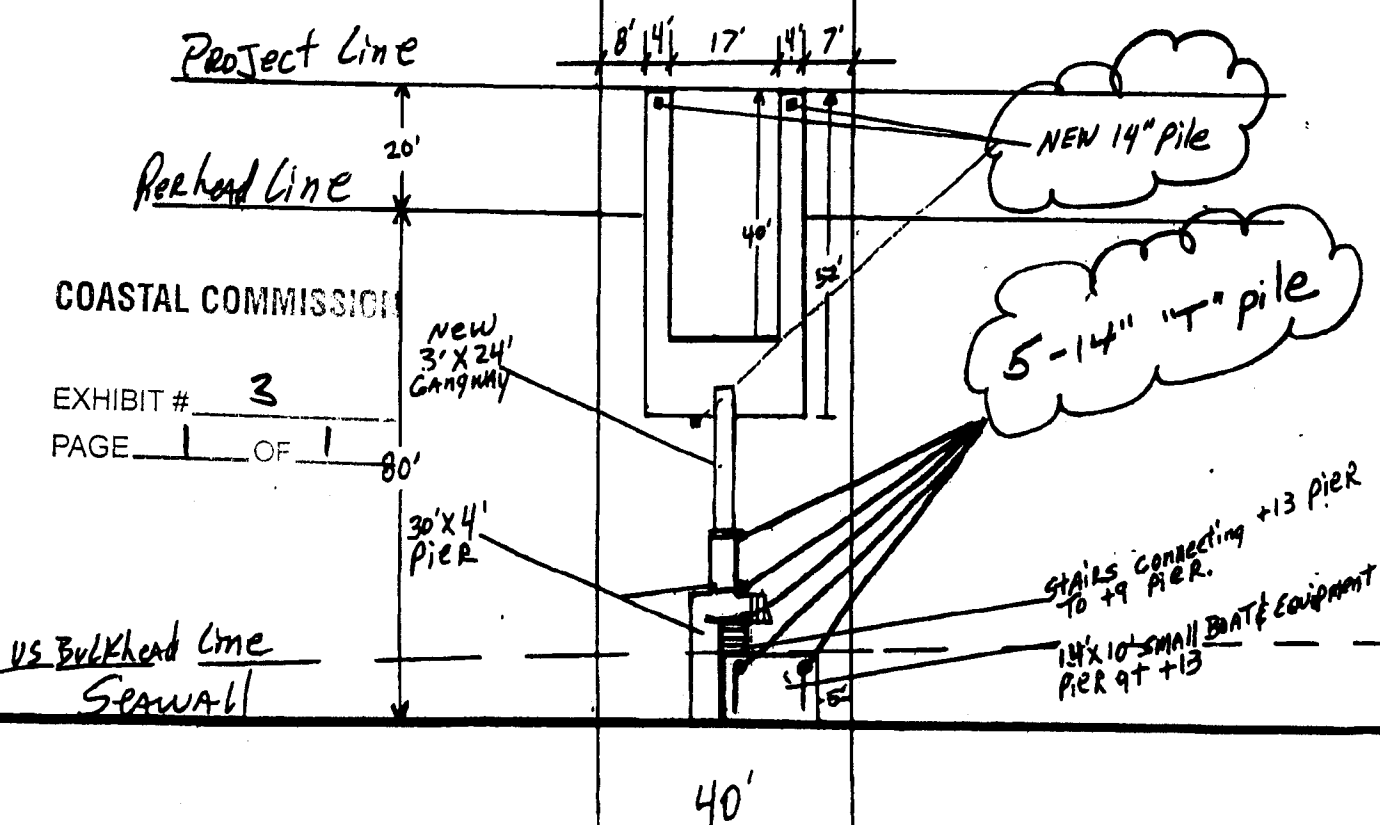 8' 4' 17' 4' 7'
Project Line
20'
NEW 14" Pile
Pierhead Line
40'
52'
COASTAL COMMISSION
5-14" "T" pile
New
3' X 24'
Gangway
EXHIBIT # 3
PAGE 1 OF 1
80'
30' X 4'
Pier
Stairs Connecting +13 Pier
To +9 Pier.
14' X 10' Small Boat & Equipment
Pier at +13
US Bulkhead Line
Seawall
5'
40'